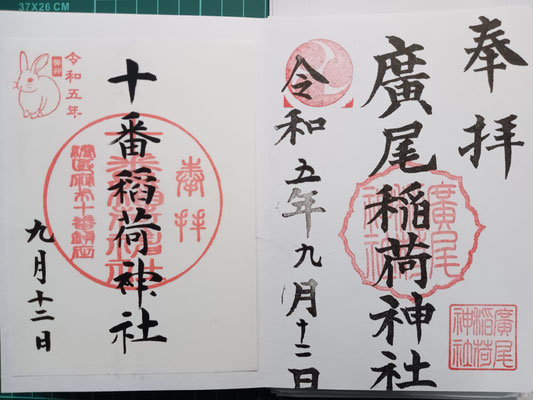 37X26 CM
奉拝
廣尾稲荷神社
廣尾稲荷神社
廣尾稲荷神社
令和五年九月十二日
令和五年
奉拝
十番稲荷神社
九月十二日